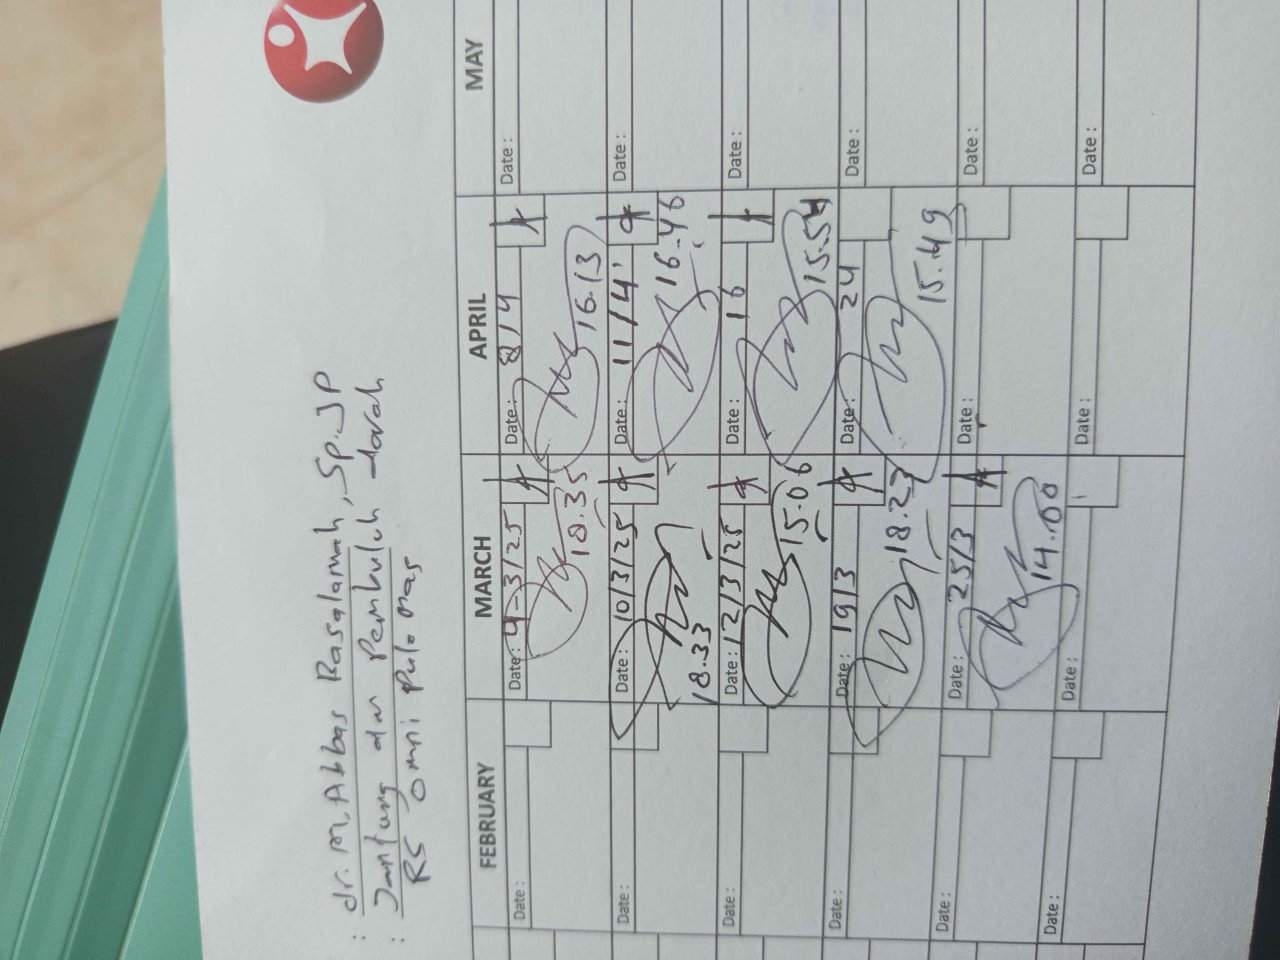 : dr. M. Abbas Basalamah, Sp.JP
: Jantung dan Pembuluh darah
RS Omni Pulomas
FEBRUARY
MARCH
APRIL
MAY
Date :
Date : 4-3/25
18.35
Date : 8/4
16.13
Date :
Date :
Date : 10/3/25
18.33
Date : 11/4
16.46
Date :
Date :
Date : 12/3/25
15.06
Date : 16
15.54
Date :
Date :
Date : 19/3
18.23
Date : 24
15.49
Date :
Date :
Date : 25/3
14.00
Date :
Date :
Date :
Date :
Date :
Date :